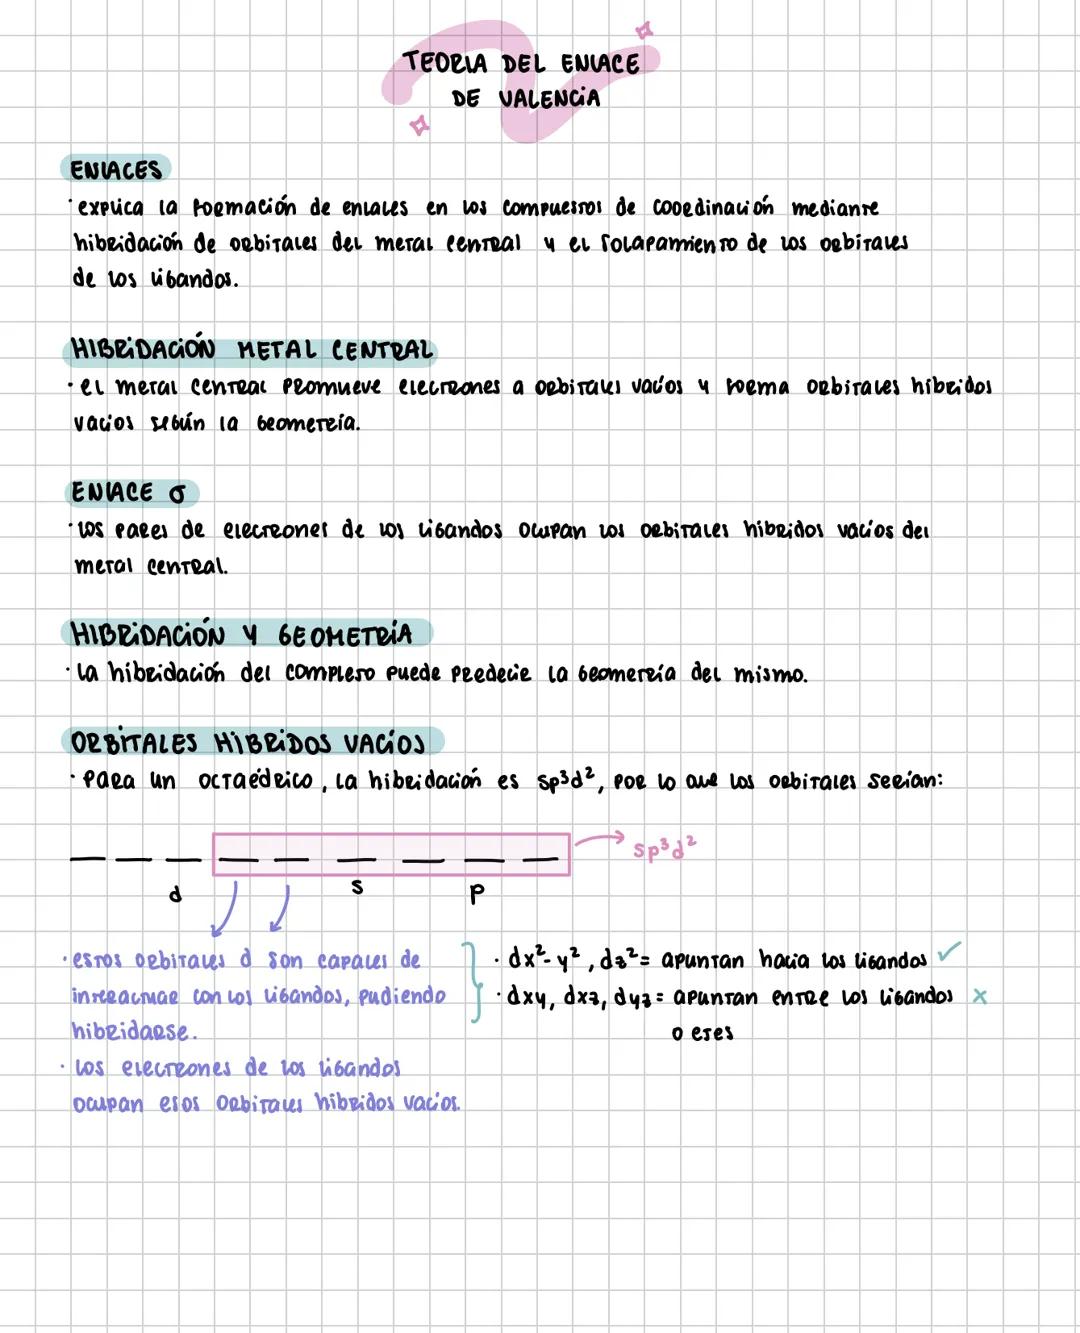 TEORIA DEL ENLACE
DE VALENCIA
ENLACES
· explica la formación de enlaces en los compuestos de coordinación mediante
hibridación de orbitales del metal central y el solapamiento de los orbitales
de los ligandos.
HIBRIDACIÓN METAL CENTRAL
· el metal central promueve electrones a orbitales vacíos y forma orbitales híbridos
vacíos según la geometría.
ENLACE σ
· los pares de electrones de los ligandos ocupan los orbitales híbridos vacíos del
metal central.
HIBRIDACIÓN Y GEOMETRÍA
· la hibridación del complejo puede predecir la geometría del mismo.
ORBITALES HIBRIDOS VACÍOS
· Para un octaédrico, la hibridación es sp³d², por lo que los orbitales serían:
sp³d²
d s p
· estos orbitales d son capaces de
interactuar con los ligandos, pudiendo
hibridarse.
· los electrones de los ligandos
ocupan esos orbitales híbridos vacíos.
· dx²-y², dz² = apuntan hacia los ligandos ✓
· dxy, dxz, dyz = apuntan entre los ligandos x
o ejes